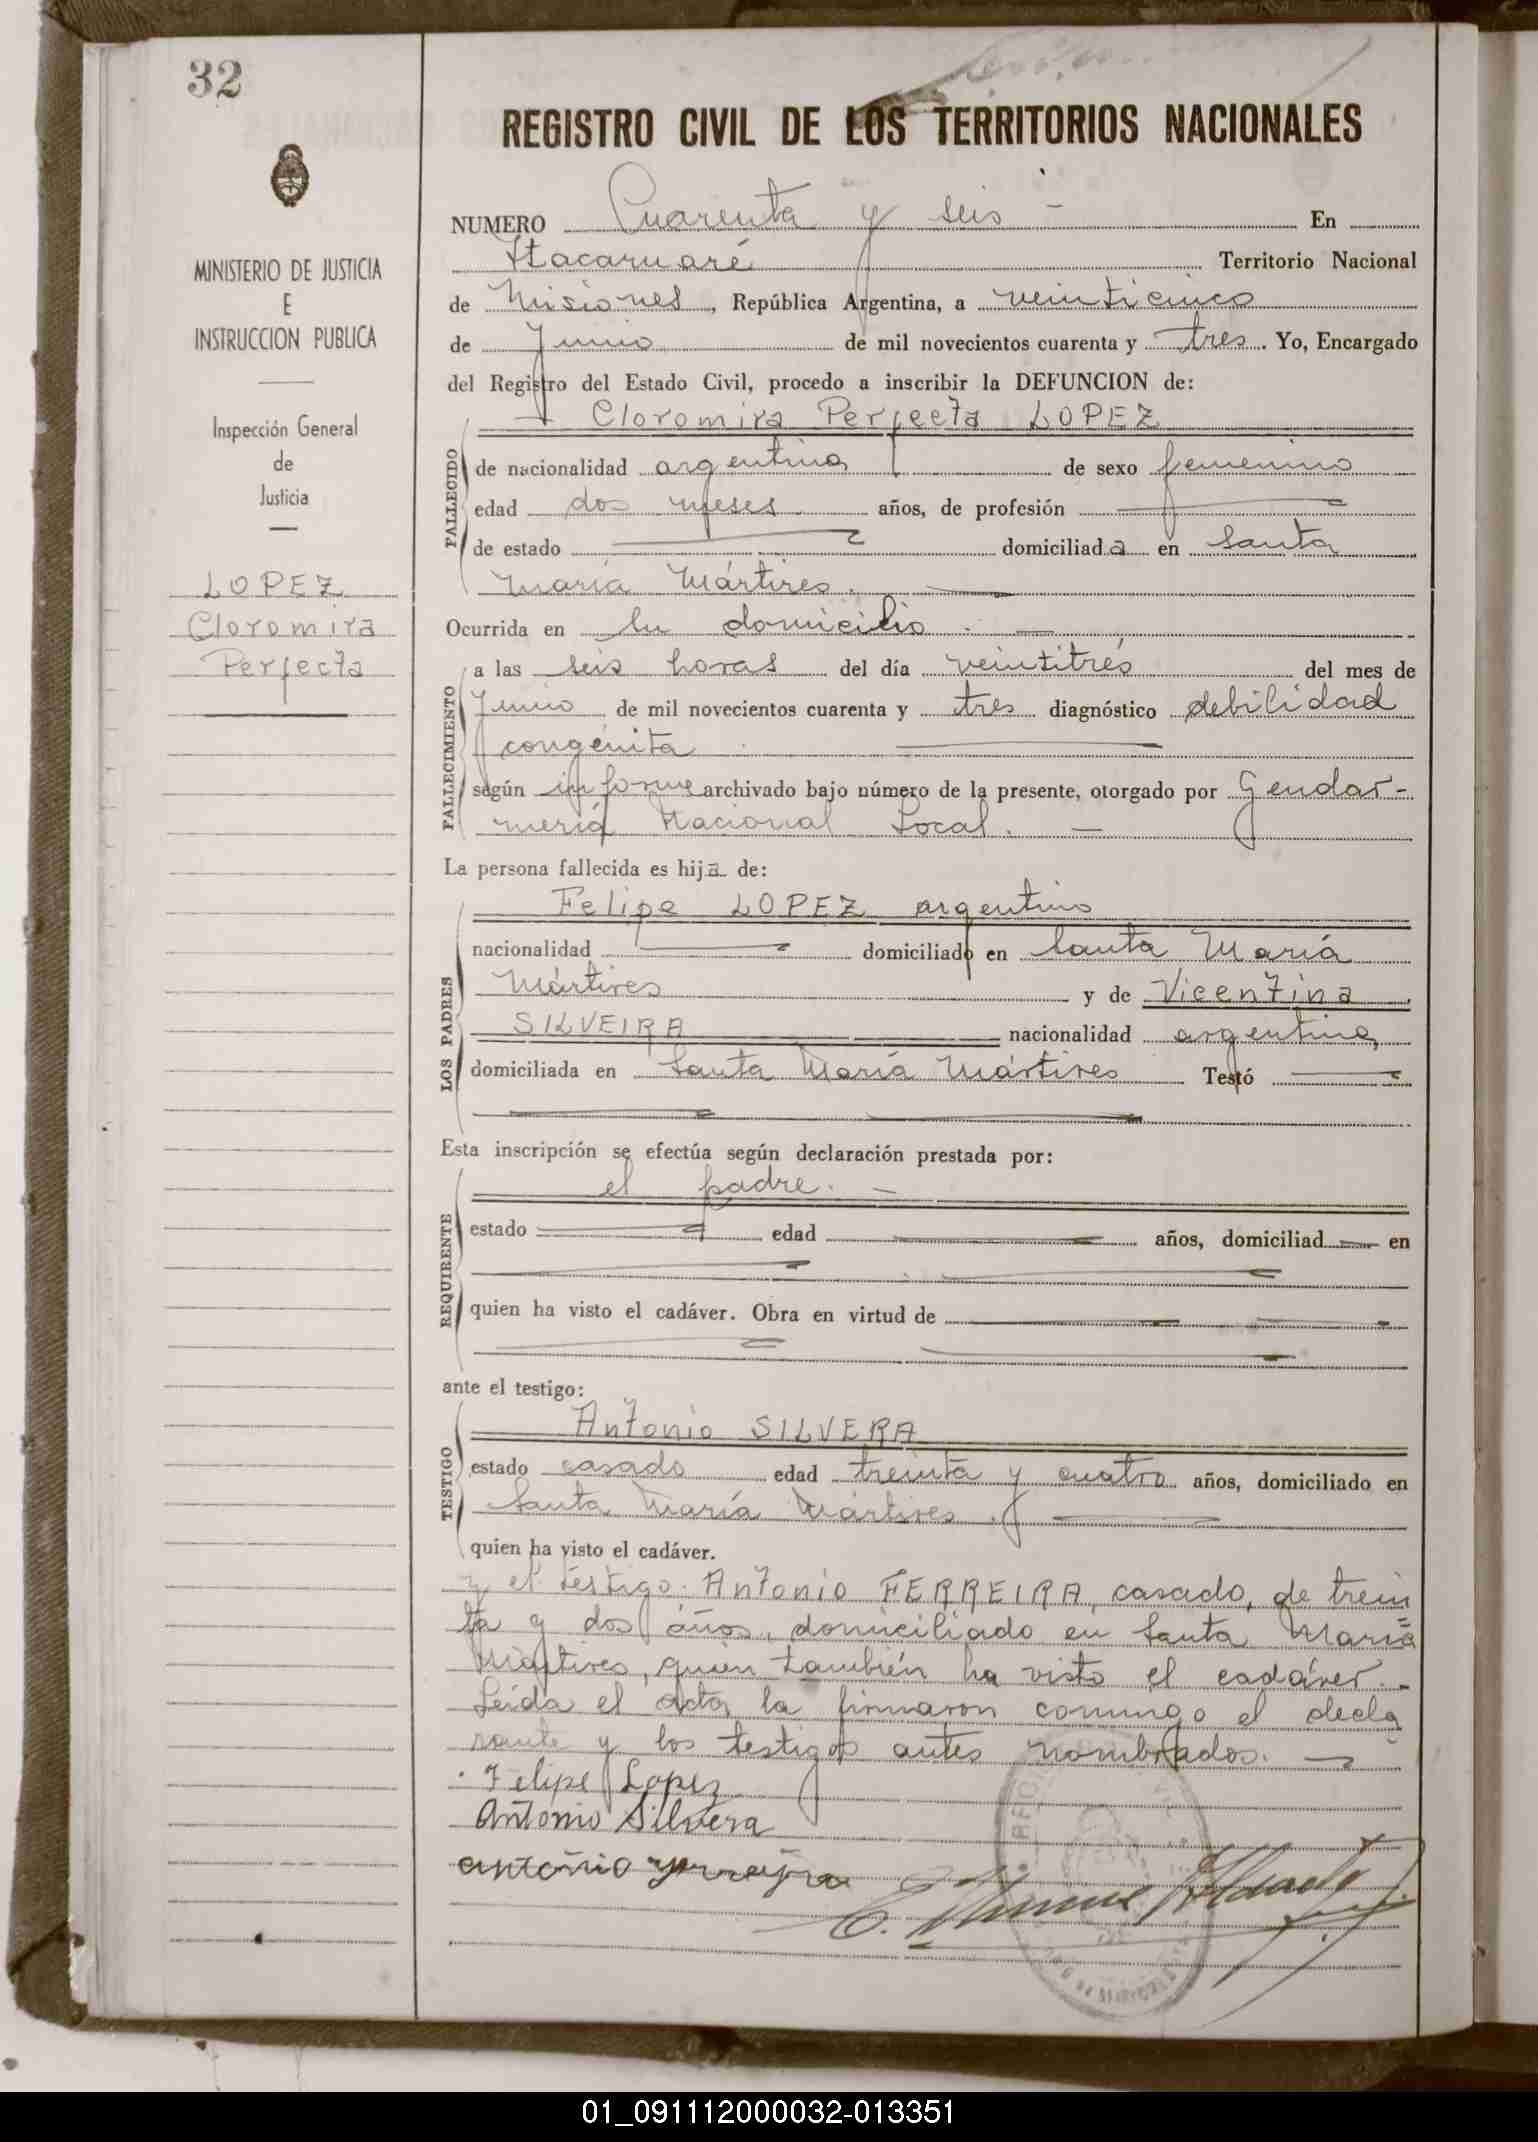 32
REGISTRO CIVIL DE LOS TERRITORIOS NACIONALES
MINISTERIO DE JUSTICIA
E
INSTRUCCION PUBLICA
Inspección General
de
Justicia
LOPEZ
Cloromira
Perfecta
NUMERO Cuarenta y seis - En
Itacaruaré Territorio Nacional
de Misiones, República Argentina, a veinticinco
de Junio de mil novecientos cuarenta y tres. Yo, Encargado
del Registro del Estado Civil, procedo a inscribir la DEFUNCION de:
Cloromira Perfecta LOPEZ
FALLECIDO
de nacionalidad argentina de sexo femenino
edad dos meses años, de profesión
de estado domiciliada en Santa
María Mártires.
Ocurrida en su domicilio.
FALLECIMIENTO
a las seis horas del día veintitrés del mes de
Junio de mil novecientos cuarenta y tres diagnóstico debilidad
congénita
según informe archivado bajo número de la presente, otorgado por Gendar-
mería Nacional Local.
La persona fallecida es hija de:
LOS PADRES
Felipe LOPEZ argentino
nacionalidad domiciliado en Santa María
Mártires y de Vicentina
SILVEIRA nacionalidad argentina
domiciliada en Santa María Mártires Testó
Esta inscripción se efectúa según declaración prestada por:
REQUIRENTE
el padre.
estado edad años, domiciliad en
quien ha visto el cadáver. Obra en virtud de
ante el testigo:
TESTIGO
Antonio SILVERA
estado casado edad treinta y cuatro años, domiciliado en
Santa María Mártires.
quien ha visto el cadáver.
y el testigo. Antonio FERREIRA, casado, de trein
ta y dos años, domiciliado en Santa María
Mártires, quien también ha visto el cadáver.
Leída el acta la firmaron conmigo el decla
rante y los testigos antes nombrados.
Felipe Lopez
Antonio Silvera
antonio
01_091112000032-013351